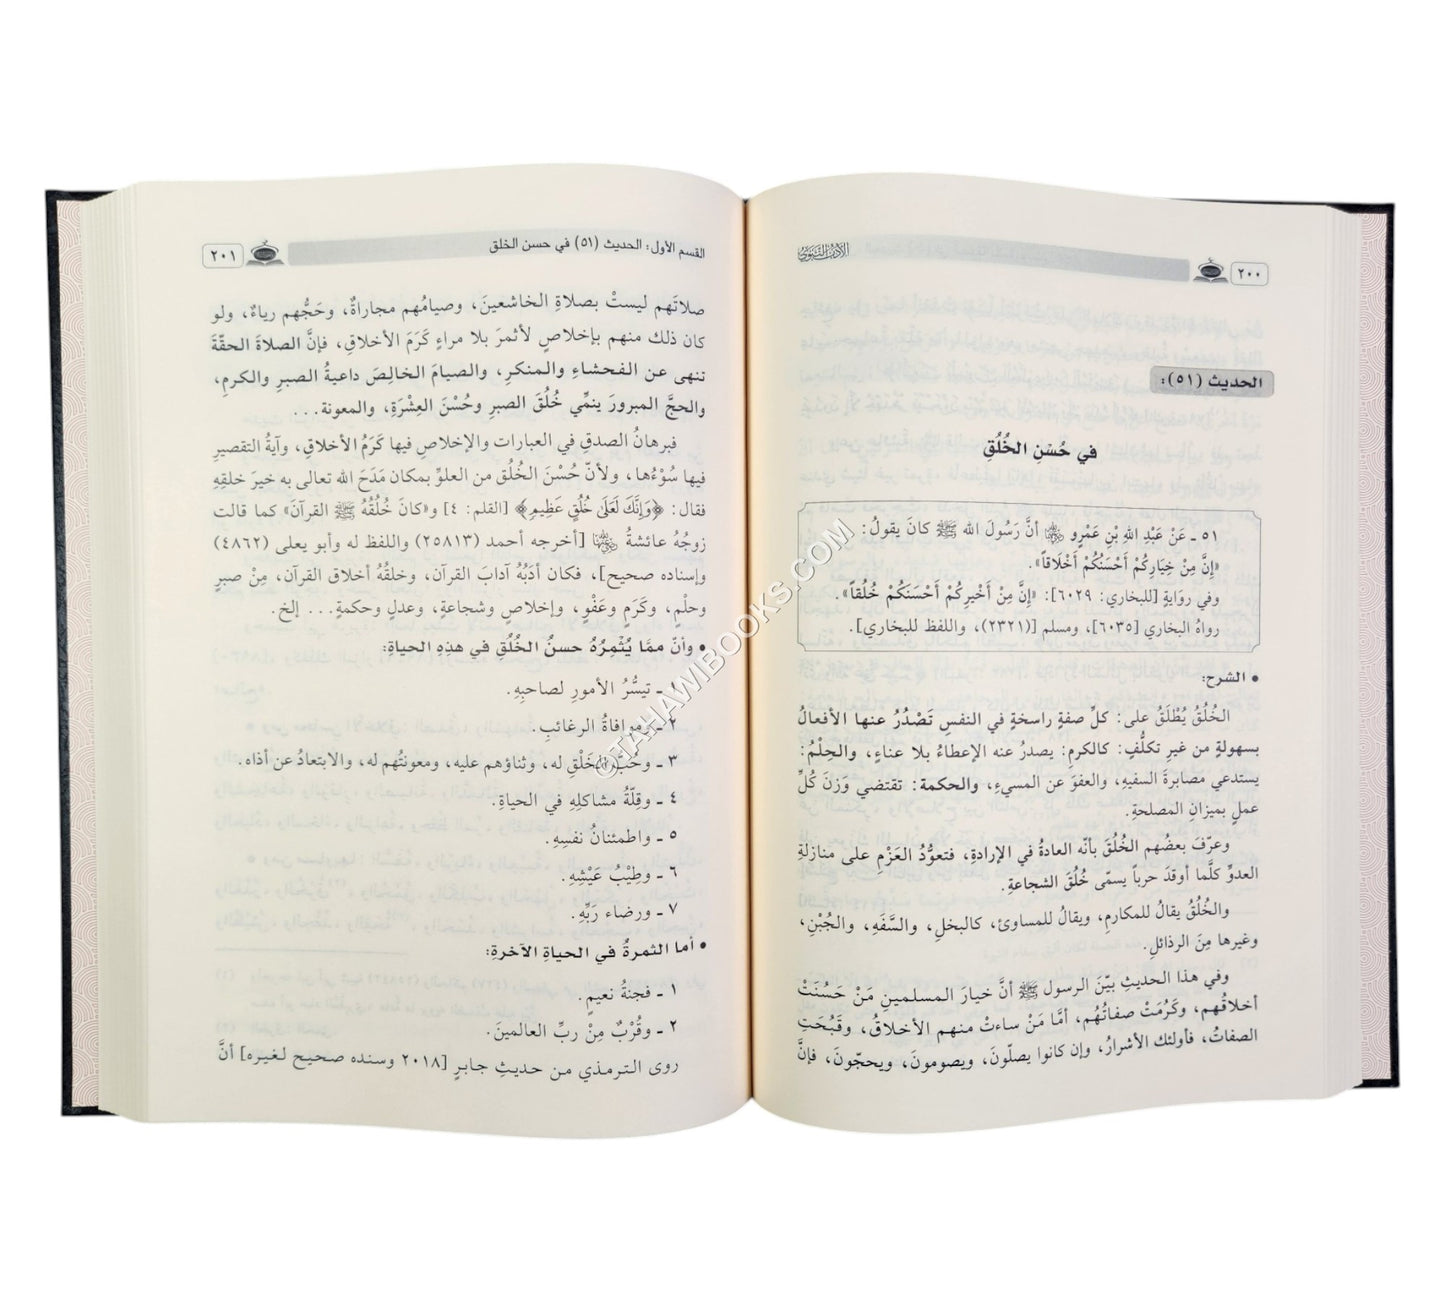 ٢٠٠
الأدب النبوي
الحديث (٥١):
في حُسْنِ الخُلُقِ
٥١ ـ عَنْ عَبْدِ اللهِ بْنِ عَمْرٍو ﵄ أنَّ رَسُولَ الله ﷺ كانَ يقولُ:
«إِنَّ مِنْ خِيَارِكُمْ أَحْسَنُكُمْ أَخْلَاقاً».
وفي روَايَةٍ [للبخاري: ٦٠٢٩]: «إِنَّ مِنْ أَخْيَرِكُمْ أَحْسَنَكُمْ خُلُقاً».
رواهُ البخاري [٦٠٣٥]، ومسلم [(٢٣٢١)، واللفظ للبخاري].
• الشرح:
الخُلُقُ يُطْلَقُ على: كلِّ صفةٍ راسخةٍ في النفسِ تَصْدُرُ عنها الأفعالُ
بسهولةٍ من غيرِ تكلُّفٍ: كالكرمِ: يصدرُ عنه الإعطاءُ بلا عناءٍ، والحِلْمُ:
يستدعي مصابرةَ السفيهِ، والعفوَ عن المسيءِ، والحكمة: تقتضي وَزنَ كُلِّ
عملٍ بميزانِ المصلحةِ.
وعرّفَ بعضُهم الخُلُقَ بأنّه العادةُ في الإرادةِ، فتعوُّدُ العَزْمِ على منازلةِ
العدوِّ كلَّما أوقدَ حرباً يسمّى خُلُقَ الشجاعةِ.
والخُلُقُ يقالُ للمكارمِ، ويقالُ للمساوئِ، كالبخلِ، والسَّفَهِ، والجُبْنِ،
وغيرها مِنَ الرذائلِ.
وفي هذا الحديثِ بيّنَ الرسول ﷺ أنَّ خيارَ المسلمينَ مَنْ حَسُنَتْ
أخلاقُهم، وكَرُمَتْ صفاتُهُم، أمَّا مَنْ ساءتْ منهم الأخلاقُ، وقَبُحَتِ
الصفاتُ، فأولئك الأشرارُ، وإن كانوا يصلّونَ، ويصومونَ، ويحجّونَ، فإنَّ
القسم الأول: الحديث (٥١) في حسن الخلق
٢٠١
صلاتَهم ليستْ بصلاةِ الخاشعينَ، وصيامُهم مجاراةٌ، وحَجُّهم رياءٌ، ولو
كان ذلك منهم بإخلاصٍ لأثمرَ بلا مراءٍ كَرَمَ الأخلاقِ، فإنَّ الصلاةَ الحقّةَ
تنهى عن الفحشاءِ والمنكرِ، والصيامَ الخالِصَ داعيةُ الصبرِ والكرمِ،
والحجَّ المبرورَ ينمِّي خُلُقَ الصبرِ وحُسْنَ العِشْرَةِ، والمعونة...
فبرهانُ الصدقِ في العبارات والإخلاصِ فيها كَرَمُ الأخلاقِ، وآيةُ التقصيرِ
فيها سُوْءُها، ولأنّ حُسْنَ الخُلُقِ من العلوِّ بمكان مَدَحَ الله تعالى به خيرَ خلقِهِ
فقال: ﴿وَإِنَّكَ لَعَلَىٰ خُلُقٍ عَظِيمٍ﴾ [القلم: ٤] و«كانَ خُلُقُهُ ﷺ القرآنَ» كما قالت
زوجُهُ عائشةُ ﵂ [أخرجه أحمد (٢٥٨١٣) واللفظ له وأبو يعلى (٤٨٦٢)
وإسناده صحيح]، فكان أدَبُهُ آدابَ القرآن، وخلقُهُ أخلاق القرآن، مِنْ صبرٍ
وحلْمٍ، وكَرَمٍ وعَفْوٍ، وإخلاصٍ وشجاعةٍ، وعدلٍ وحكمةٍ... إلخ.
• وأنّ ممَّا يُثْمِرُهُ حسنُ الخُلُقِ في هذِهِ الحياةِ:
١ ـ تيسُّرُ الأمورِ لصاحبِهِ.
٢ ـ وموافاةُ الرغائبِ.
٣ ـ وحُبُّ الخَلْقِ له، وثناؤهم عليه، ومعونتُهم له، والابتعادُ عن أذاه.
٤ ـ وقِلّةُ مشاكلِهِ في الحياةِ.
٥ ـ واطمئنانُ نفسِهِ.
٦ ـ وطِيْبُ عَيْشِهِ.
٧ ـ ورضاء رَبِّهِ.
• أما الثمرةُ في الحياةِ الآخرةِ:
١ ـ فجنةُ نعيمٍ.
٢ ـ وقُرْبٌ مِنْ ربِّ العالمينَ.
روى الترمذي من حديثِ جابرٍ [٢٠١٨ وسنده صحيح لغيره] أنَّ
©TAHAWIBOOKS.COM